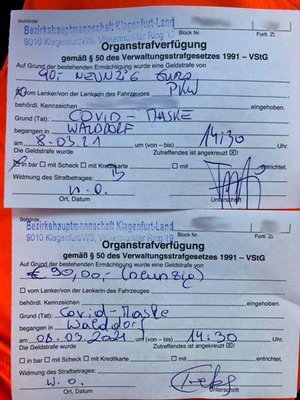 Behörde:
Bezirkshauptmannschaft Klagenfurt-Land
9010 Klagenfurt/WS, Völkermarkter Ring 19
Block Nr.
Fortl. Zl.
Organstrafverfügung
gemäß § 50 des Verwaltungsstrafgesetzes 1991 – VStG
Auf Grund der bestehenden Ermächtigung wurde eine Geldstrafe von
90,- NEUNZIG EURO
☒ vom Lenker/von der Lenkerin des Fahrzeuges PKW
behördl. Kennzeichen
Grund (Tat): COVID - MASKE
begangen in WALDDORF
am 8.03.21 um (von – bis) 14:30 Uhr
Die Geldstrafe wurde Zutreffendes ist angekreuzt ☒
☒ in bar ☐ mit Scheck ☐ mit Kreditkarte
Widmung des Strafbetrages:
w.o.
Ort, Datum
Unterschrift
Behörde:
Bezirkshauptmannschaft Klagenfurt-Land
9010 Klagenfurt/WS, Völkermarkter Ring 19
Organstrafverfügung
gemäß § 50 des Verwaltungsstrafgesetzes 1991 – VStG
Auf Grund der bestehenden Ermächtigung wurde eine Geldstrafe von
€ 90,00,- (neunzig)
☐ vom Lenker/von der Lenkerin des Fahrzeuges
behördl. Kennzeichen
Grund (Tat): Covid-Maske
begangen in Walddorf
am 08.03.2021 um (von – bis) 14:30 Uhr
Die Geldstrafe wurde Zutreffendes ist angekreuzt ☒
☐ in bar ☐ mit Scheck ☐ mit Kreditkarte ☐
entrichtet.
Widmung des Strafbetrages:
w.o.
Ort, Datum
Unterschrift